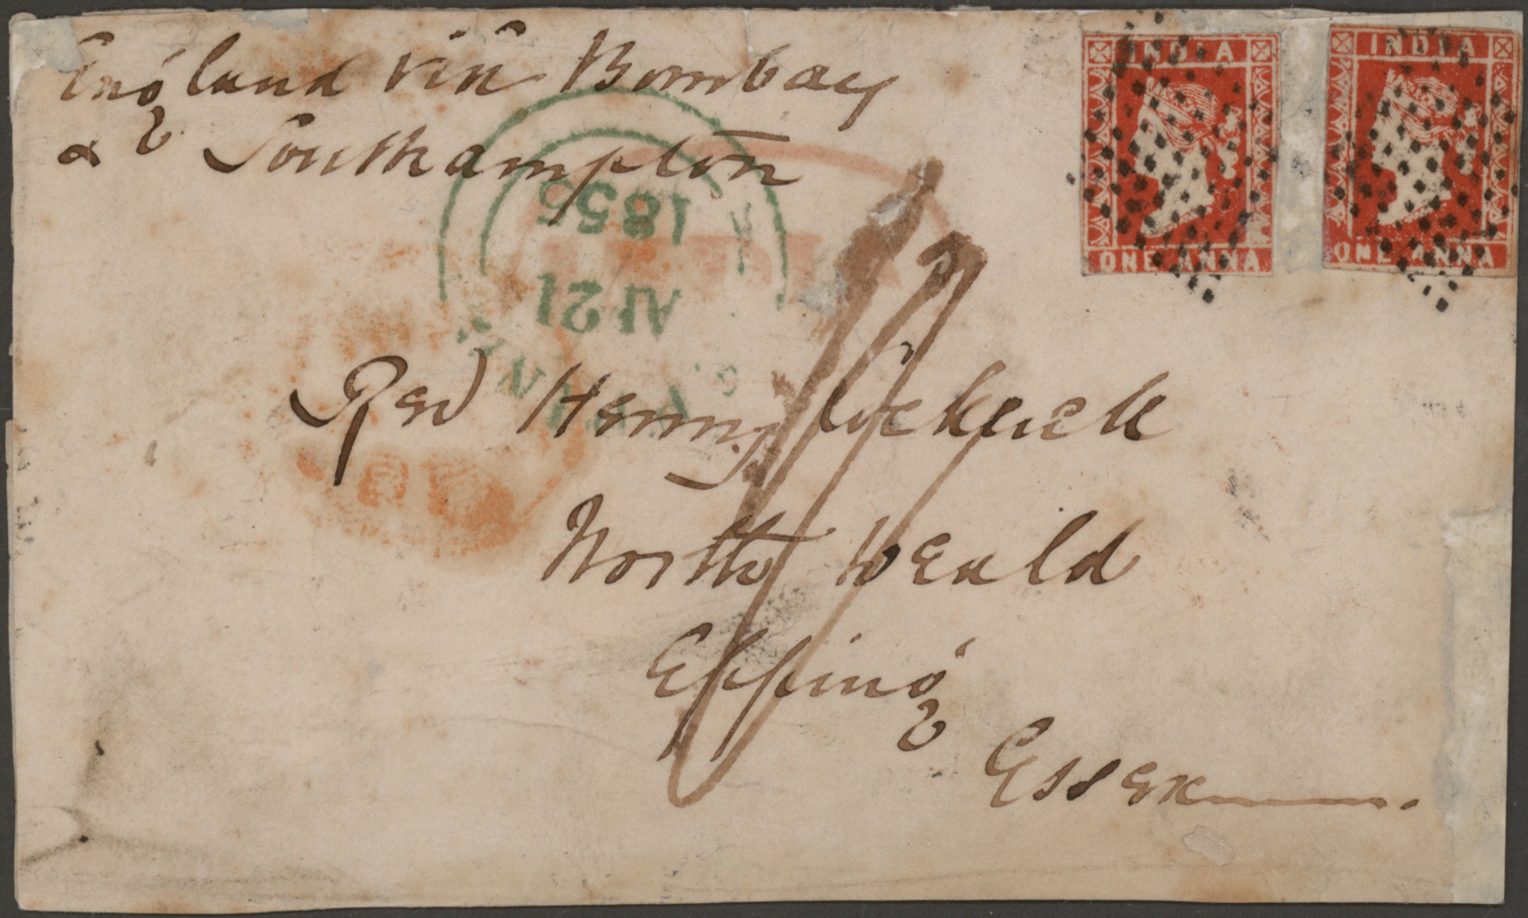 England via Bombay
& Southampton
INDIA
ONE ANNA
INDIA
ONE ANNA
1855
AP 21
INDIA
Revd Henry
North Weald
Epping
Essex